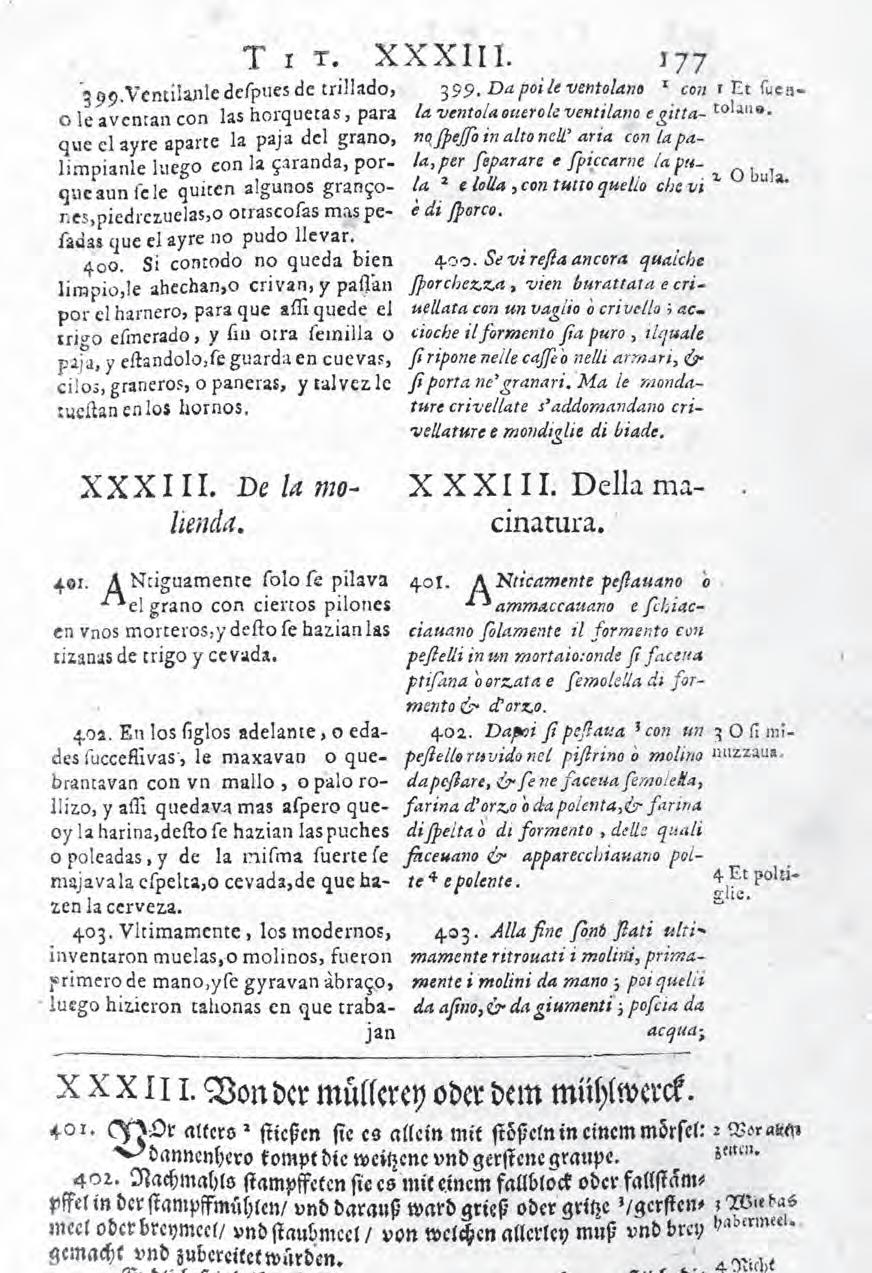 TIT. XXXIII. 177
399. Ventilanle deſpues de trillado,
o le aventan con las horquetas, para
que el ayre aparte la paja del grano,
limpianle luego con la çaranda, por-
que aun ſe le quiten algunos granço-
nes, piedrezuelas, o otras coſas mas pe-
ſadas que el ayre no pudo llevar.
400. Si con todo no queda bien
limpio, le ahechan, o crivan, y paſſan
por el harnero, para que aſſi quede el
trigo eſmerado, y ſin otra ſemilla o
paja, y eſtandolo, ſe guarda en cuevas,
cilos, graneros, o paneras, y talvez le
tueſtan en los hornos.
399. Da poi le ventolano ¹ con
la ventola ouero le ventilano e gitta-
no ſpeſſo in alto nell' aria con la pa-
la, per ſeparare e ſpiccarne la pu-
la ² e lolla, con tutto quello che vi
è di ſporco.
1 Et ſuen-
tolano.
2 O bula.
400. Se vi reſta ancora qualche
ſporchezza, vien burattata e cri-
uellata con un vaglio ò crivello; ac-
cioche il formento ſia puro, ilquale
ſi ripone nelle caſſe ò nelli armari, &
ſi porta ne' granari. Ma le monda-
ture crivellate s'addomandano cri-
vellature e mondiglie di biade.
XXXIII. De la mo-
lienda.
XXXIII. Della ma-
cinatura.
401. ANtiguamente ſolo ſe pilava
el grano con ciertos pilones
en vnos morteros, y deſto ſe hazian las
tizanas de trigo y cevada.
402. En los ſiglos adelante, o eda-
des ſucceſſivas, le maxavan o que-
brantavan con vn mallo, o palo ro-
llizo, y aſſi quedava mas aſpero que-
oy la harina, deſto ſe hazian las puches
o poleadas, y de la miſma fuerte ſe
majava la eſpelta, o cevada, de que ha-
zen la cerveza.
403. Vltimamente, los modernos,
inventaron muelas, o molinos, fueron
primero de mano, y ſe gyravan à braço,
luego hizieron tahonas en que traba-
jan
401. ANticamente peſtauano ò
ammaccauano e ſchiac-
ciauano ſolamente il formento con
peſtelli in un mortaio: onde ſi faceua
ptiſana ò orzata e ſemolella di for-
mento & d'orzo.
402. Dapoi ſi peſtaua ³ con un
peſtello ruvido nel piſtrino ò molino
da peſtare, & ſe ne faceua ſemolella,
farina d'orzo ò da polenta, & farina
di ſpelta ò di formento, delle quali
faceuano & apparecchiauano pol-
te ⁴ e polente.
3 O ſi mi-
nuzzaua.
4 Et polti-
glie.
403. Alla fine ſono ſtati ulti-
mamente ritrouati i molini, prima-
mente i molini da mano; poi quelli
da aſino, & da giumenti; poſcia da
acqua;
XXXIII. Von der můllerey oder dem mühlwerck.
401. VOr alters ² ſtieſſen ſie es allein mit ſtöſſeln in einem mörſel:
dannenhero kompt die weitzene vnd gerſtene graupe.
402. Nachmahls ſtampffeten ſie es mit einem fallblock oder fallſtäm-
pffel in der ſtampffmühlen/ vnd darauß ward grieß oder gritze ³/gerſten-
meel oder breymeel/ vnd ſtaubmeel/ von welchen allerley muß vnd brey
gemacht vnd zubereitet würden.
2 Vor alten
zeiten.
3 Wie das
habermeel.
4 Nicht